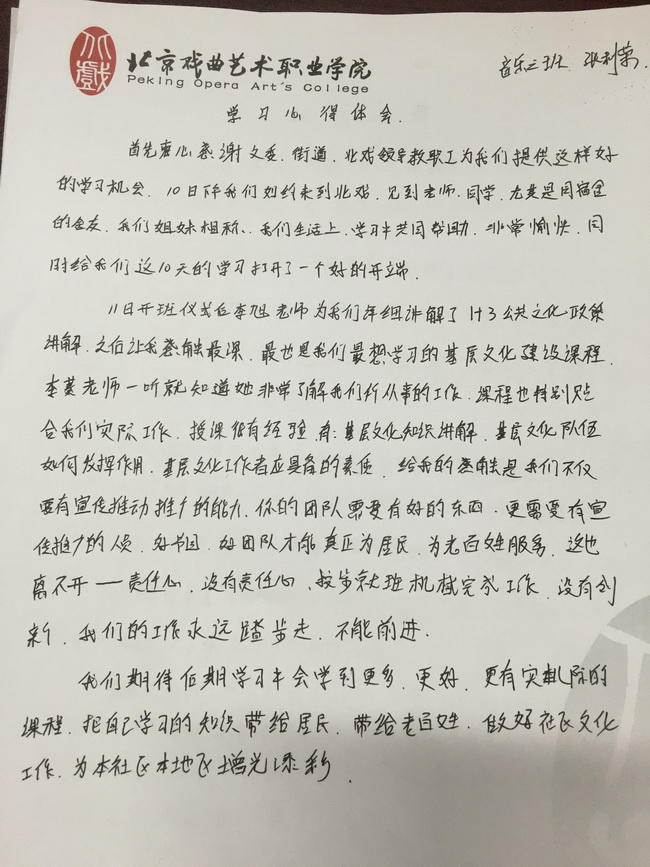 北京戏曲艺术职业学院
Peking Opera Art's College
音乐三班 张利荣
学习心得体会
首先衷心感谢文委、街道、北戏领导教职工为我们提供这样好
的学习机会。10日下午我们如约来到北戏,见到老师、同学,尤其是同宿舍
的室友,我们姐妹相称,我们生活上、学习中共同帮助,非常愉快,同
时给我们这10天的学习打开了一个好的开端。
11日开班仪式后李旭老师为我们详细讲解了1+3公共文化政策
讲解,之后让我感触最深,最也是我们最想学习的基层文化建设课程,
老师一听就知道她非常了解我们所从事的工作,课程也特别贴
合我们实际工作,授课很有经验,有:基层文化知识讲解,基层文化队伍
如何发挥作用,基层文化工作者应具备的素质,给我的感触是我们不仅
要有宣传推动推广的能力,你的团队需要有好的东西,更需要有宣
传推广的人员,好节目、好团队才能真正为居民、为老百姓服务,这也
离不开——责任心,没有责任心、按步就班机械完成工作,没有创
新,我们的工作永远踏步走,不能前进.
我们期待后期学习中会学到更多、更好、更有实际的
课程,把自己学习的知识带给居民,带给老百姓,做好社区文化
工作,为本社区本地区增光添彩.